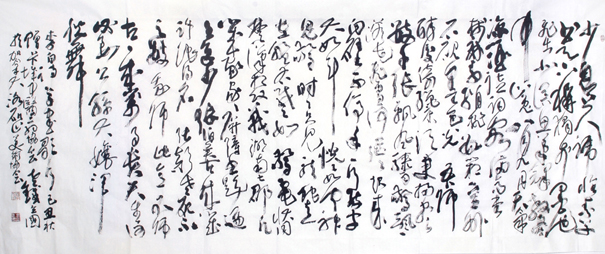 少年上人号怀素草书
天下称独步墨池
飞出北溟鱼笔锋杀尽
中山兔八月九月天气
凉酒徒词客满高堂
笺麻素绢排数箱宣州
石砚墨色光吾师
醉后倚绳床须臾扫尽
数千张飘风骤雨惊飒飒
落花飞雪何茫茫起来
向壁不停手一行数字
大如斗恍恍如闻神鬼
惊时时只见龙蛇走
左盘右蹙如惊电状同
楚汉相攻战湖南七郡凡
几家家家屏障书题遍
王逸少张伯英古来几
许浪得名张颠老死不
足数我师此义不师
古古来万事贵天生何
必要公孙大娘浑
脱舞
李白草书歌行己丑秋